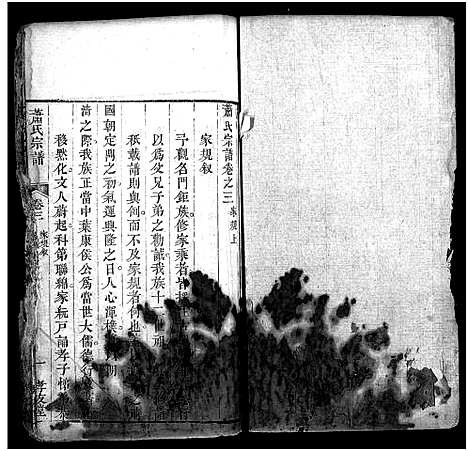 蕭氏宗譜卷之三 家規上
家規叙
予觀名門鉅族修家乘者皆
以為父兄子弟之勸誡我族十一世
秖載譜則與劍而不及家規者何也
國朝定鼎之初氣運興隆之日人心渾樸
清之際我族正當中葉康侯公為當世大儒德行
移黙化文人蔚起科第聯綿家絃戶誦孝子
蕭氏宗譜
卷三 家規叙
一 孝友堂